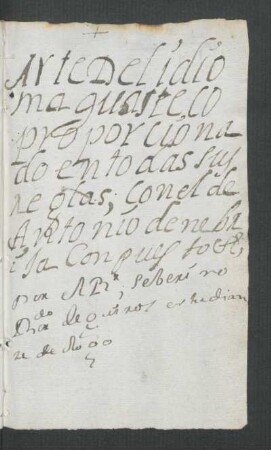 Arte Del idio
ma guasteco
proporciona
do en todas sus
reglas; con el de
Antonio de nebri
sa Conpuesto &c,
por seberino
de quiros estudian
te de